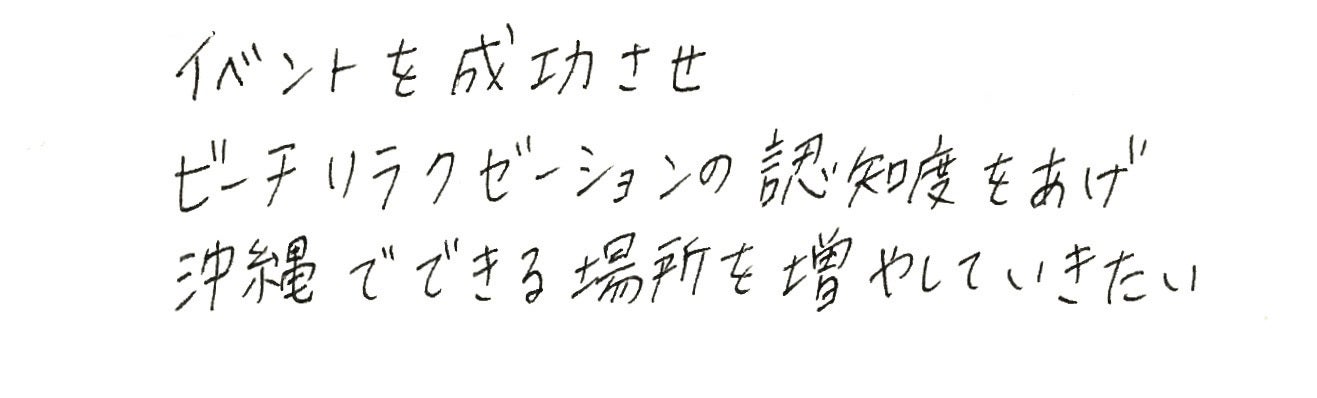 イベントを成功させ
ビーチリラクゼーションの認知度をあげ
沖縄でできる場所を増やしていきたい